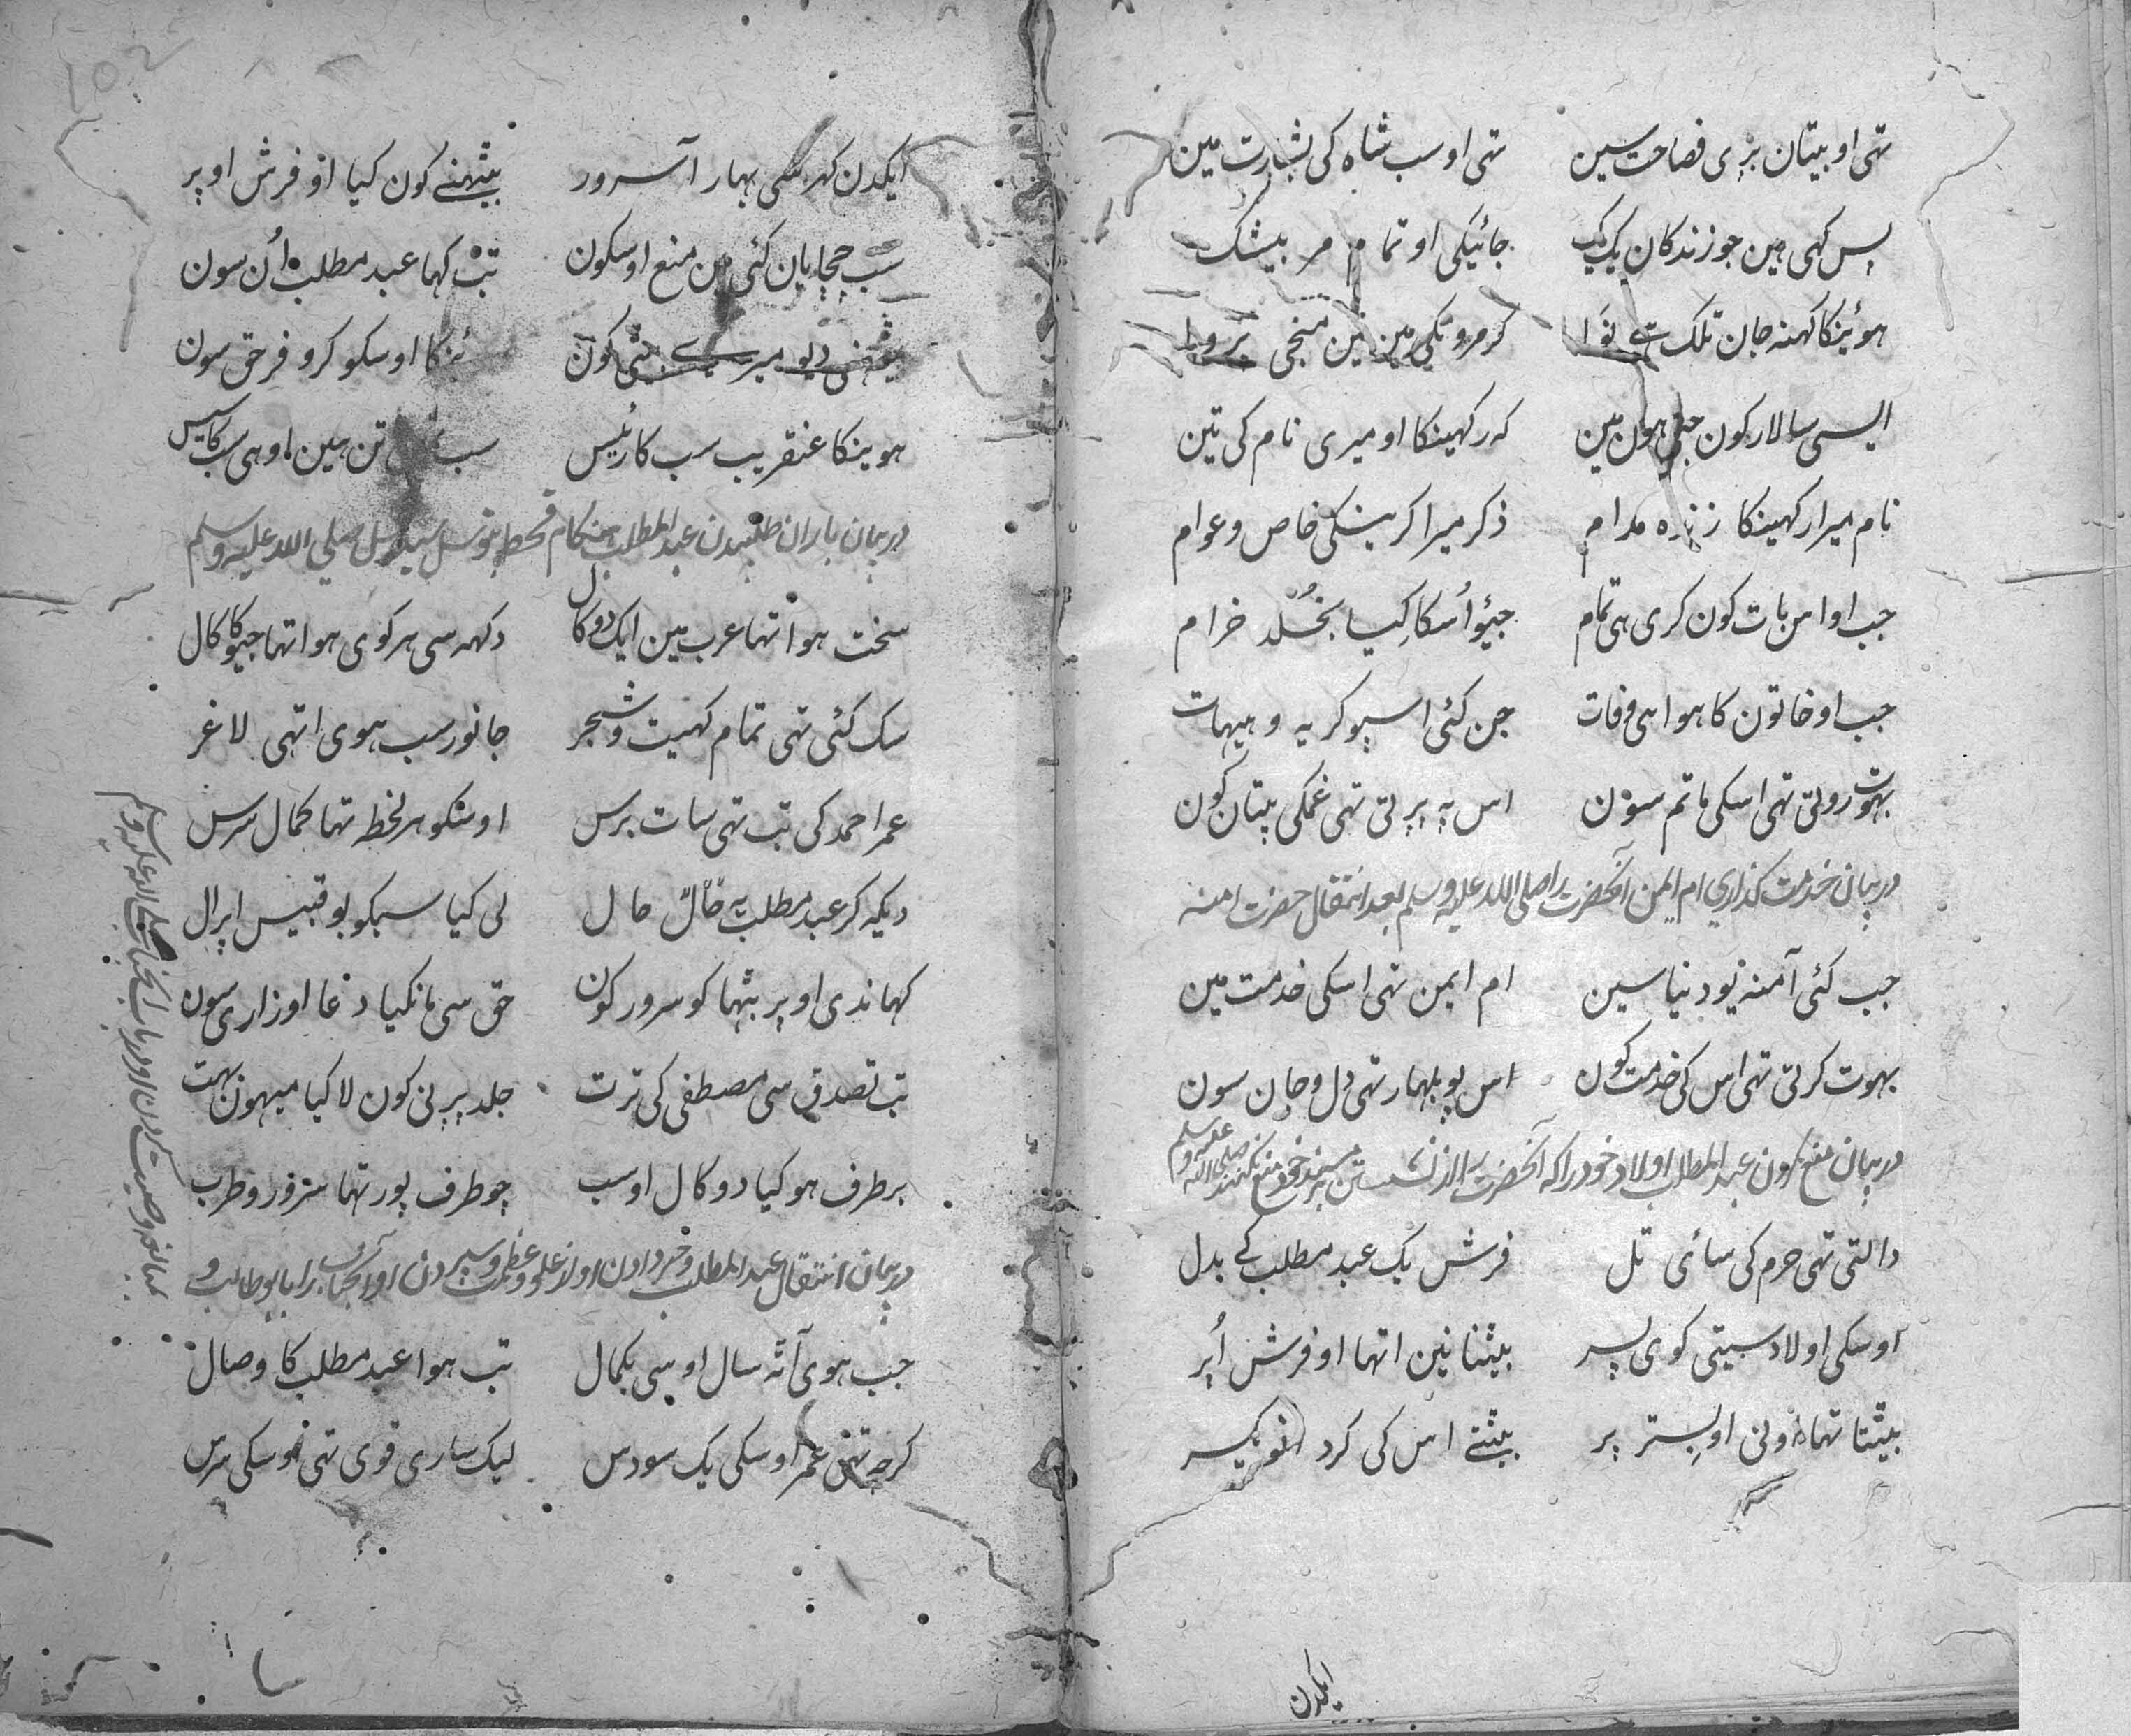 تهی او بیتان بڑی فصاحت سین تهی اوسب شاہ کی بشارت مین
پس کہی مین جو زندکان یک یک جائیکی او تمام مر بیشک
ہوئینکا کہنہ جان تلک ہی نوا کر مرونکی مین نین منجی پروا
ایسی سالار کون جنی ہون مین کہ رکہینکا او میری نام کی تین
نام میرا رکہینکا زندہ مدام ذکر میرا کرینکی خاص و عوام
جب او اس بات کون کری ہی تمام جیؤ اُسکا کِیا بخُلد خرام
جب او خاتون کا ہوا ہی وفات جن کئی اسپو کریہ و ہیہات
بہوت روتی تہی اسکی ماتم سون اس پہ پرتی تہی غمکی بیتان کون
در بیان خدمت کذاری ام ایمن آنحضرت را صلی اللہ علیہ وسلم بعد انتقال حضرت امنہ
جب کئی آمنہ یو دنیا سین ام ایمن تہی اسکی خدمت مین
بہوت کرتی تہی اس کی خدمت کون اس پو بلہار تہی دل و جان سون
در بیان منع کردن عبد المطلب اولاد خود را کہ آنحضرت را از نشستن بر مسند خود منع نکنند صلی اللہ علیہ وسلم
دالتی تہی حرم کی سائی تل فرش یک عبد مطلب کے بدل
اوسکی اولاد سیتی کوی پسر بیٹنا نین اتہا او فرش اُپر
بیٹتا تہا اونی او بستر پر بیٹتے اس کی کرد
ایکدن
ایکدن کہر سکی بہار آ سرور بیٹہنے کون کیا او فرش اوپر
سب چچایان کئی مین منع اوسکون تب کہا عبد مطلب اُن سون
بیٹہنی دیو میرے بیٹی کون اوسکو کرو فرحق سون
ہوینکا عنقریب سب کا رئیس سب تن مین او ہی سب کا سیس
در بیان باران طلبیدن عبد المطلب ہنکام قحط بتوسل سید رسل صلی اللہ علیہ وسلم
سخت ہوا تہا عرب مین ایک دوکال دکہہ سی ہر کوی ہوا تہا جیو کا کال
سک کئی تہی تمام کہیت و شجر جانور سب ہوی اتہی لاغر
عمر احمد کی تب تہی سات برس اوسکو ہر لحظہ تہا کمال سرس
دیکہ کر عبد مطلب یہ حال لی کیا سبکو بو قبیس اپرال
کہاندی اوپر بٹہا کو سرور کون حق سی مانکیا دعا او زاری سون
تب تصدق سی مصطفی کی ترت جلد پرنی کون لاکیا میہون بہت
برطرف ہو کیا دوکال اوسب چوطرف پور تہا سرور و طرب
در بیان انتقال عبد المطلب و خبر دادن او از علو و عظمت و سپردن او آنجناب را بابوطالب و
جب ہوی آٹہ سال اوسی بکمال تب ہوا عبد مطلب کا وصال
کرچہ تہی عمر اوسکی یک سو دس لیک ساری قوی تہی اوسکی سرس